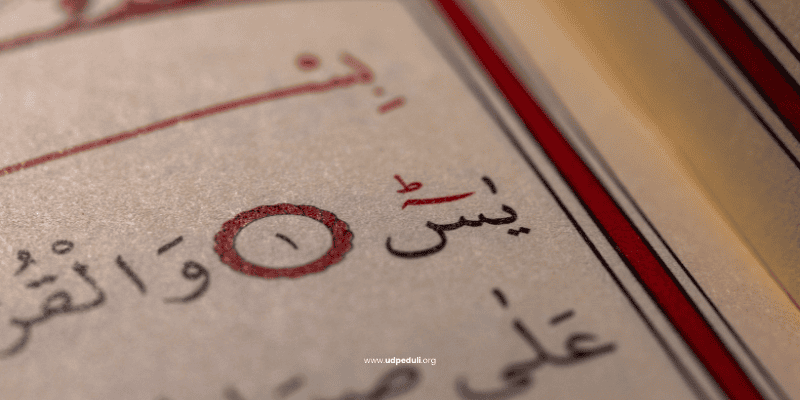 يٰسٓ ۚ ١ وَالْقُر
عَلٰى
www.udpeduli.org